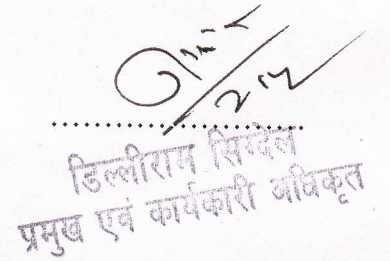 डिल्लीराम सिग्देल
प्रमुख एवं कार्यकारी अधिकृत